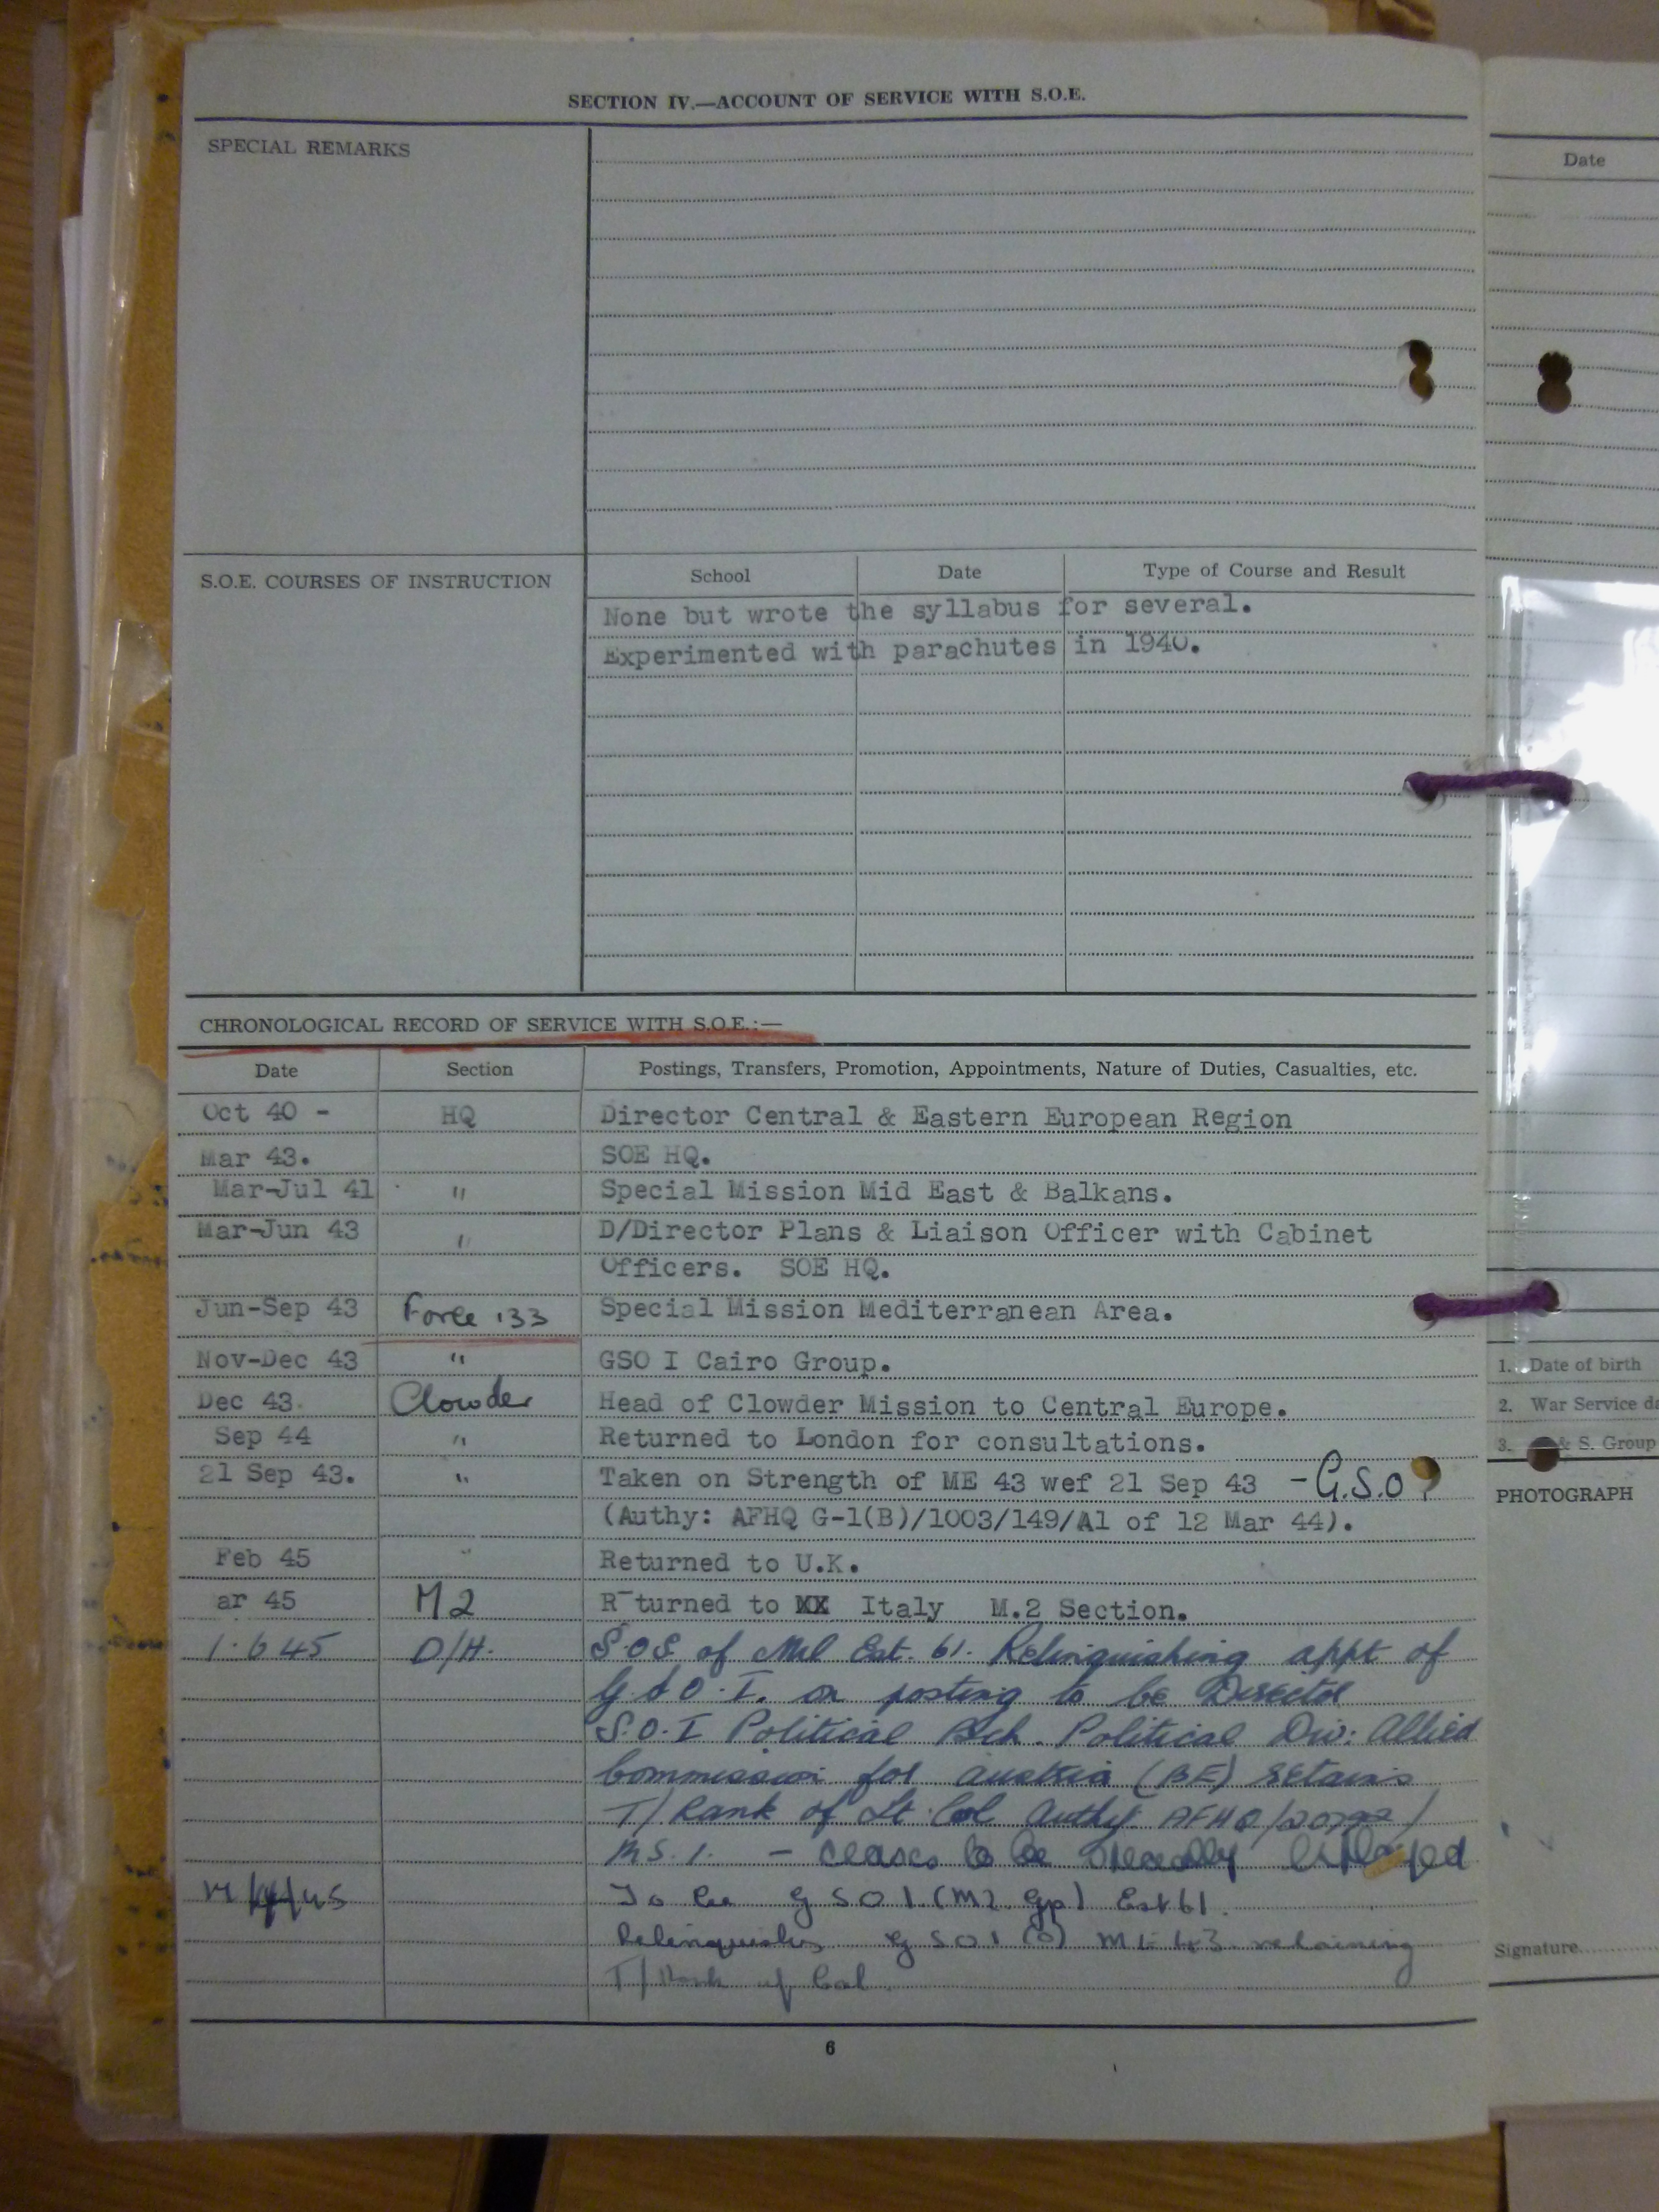 SECTION IV.—ACCOUNT OF SERVICE WITH S.O.E.
SPECIAL REMARKS
S.O.E. COURSES OF INSTRUCTION
School Date Type of Course and Result
None but wrote the syllabus for several.
Experimented with parachutes in 1940.
CHRONOLOGICAL RECORD OF SERVICE WITH S.O.E.:—
Date Section Postings, Transfers, Promotion, Appointments, Nature of Duties, Casualties, etc.
Oct 40 - HQ Director Central & Eastern European Region
Mar 43. SOE HQ.
Mar-Jul 41 " Special Mission Mid East & Balkans.
Mar-Jun 43 " D/Director Plans & Liaison Officer with Cabinet
Officers. SOE HQ.
Jun-Sep 43 Force 133 Special Mission Mediterranean Area.
Nov-Dec 43 " GSO I Cairo Group.
Dec 43. Clowder Head of Clowder Mission to Central Europe.
Sep 44 " Returned to London for consultations.
21 Sep 43. " Taken on Strength of ME 43 wef 21 Sep 43 - G.S.O
(Authy: AFHQ G-1(B)/1003/149/A1 of 12 Mar 44).
Feb 45 " Returned to U.K.
ar 45 M2 R turned to XX Italy M.2 Section.
1.6 45 D/H. S.O.S. of Mil Est. 61. Relinquishing appt of
G.S.O.I. on posting to be Director
S.O.I Political Bch. Political Div: Allied
Commission for Austria (BE) retains
T/Rank of Lt. Col Authy AFHQ/
— ceases to be specially employed
To be G S O 1 (M2 Gp) Est 61.
Relinquishes G S O 1 (O) ME 43 retaining
T/Rank of Col
6
Date
1. Date of birth
2. War Service da
3. & S. Group
PHOTOGRAPH
Signature